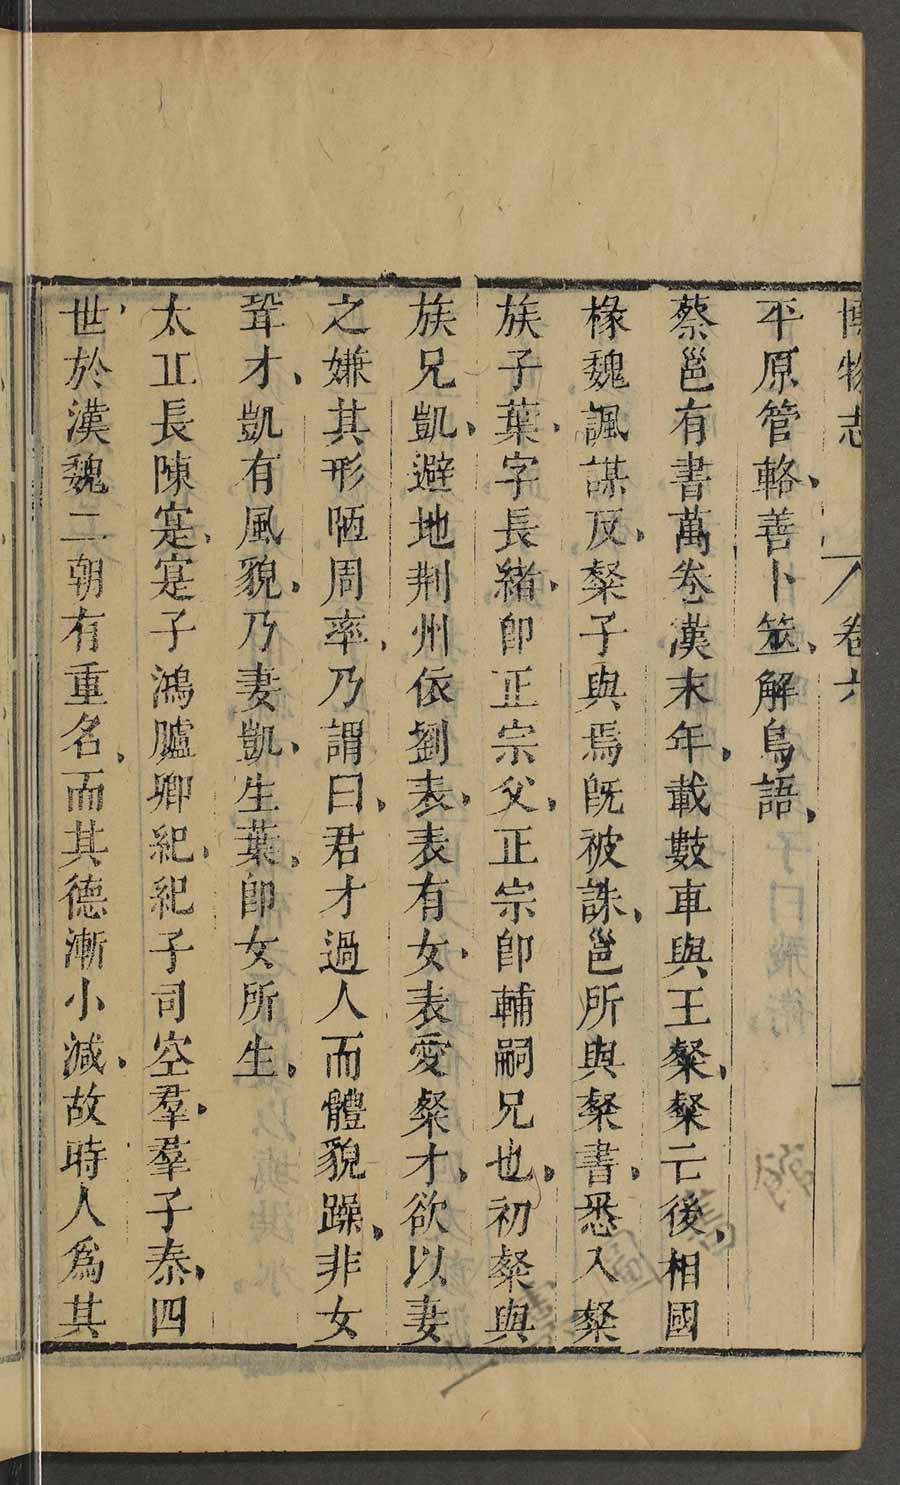 博物志 卷六 一
平原管輅善卜筮、解鳥語、
蔡邕有書萬卷漢末年、載數車與王粲、粲亡後、相國
椽魏諷謀反、粲子與焉旣被誅、邕所與粲書、悉入粲
族子葉、字長緒、卽正宗父、正宗卽輔嗣兄也、初粲與
族兄凱、避地荆州依劉表、表有女、表愛粲才、欲以妻
之嫌其形陋周率、乃謂曰、君才過人而體貌躁、非女
聟才、凱有風貌、乃妻凱、生葉、卽女所生、
太丘長陳寔、寔子鴻臚卿紀、紀子司空羣、羣子泰、四
世、於漢魏二朝有重名、而其德漸小減、故時人爲其